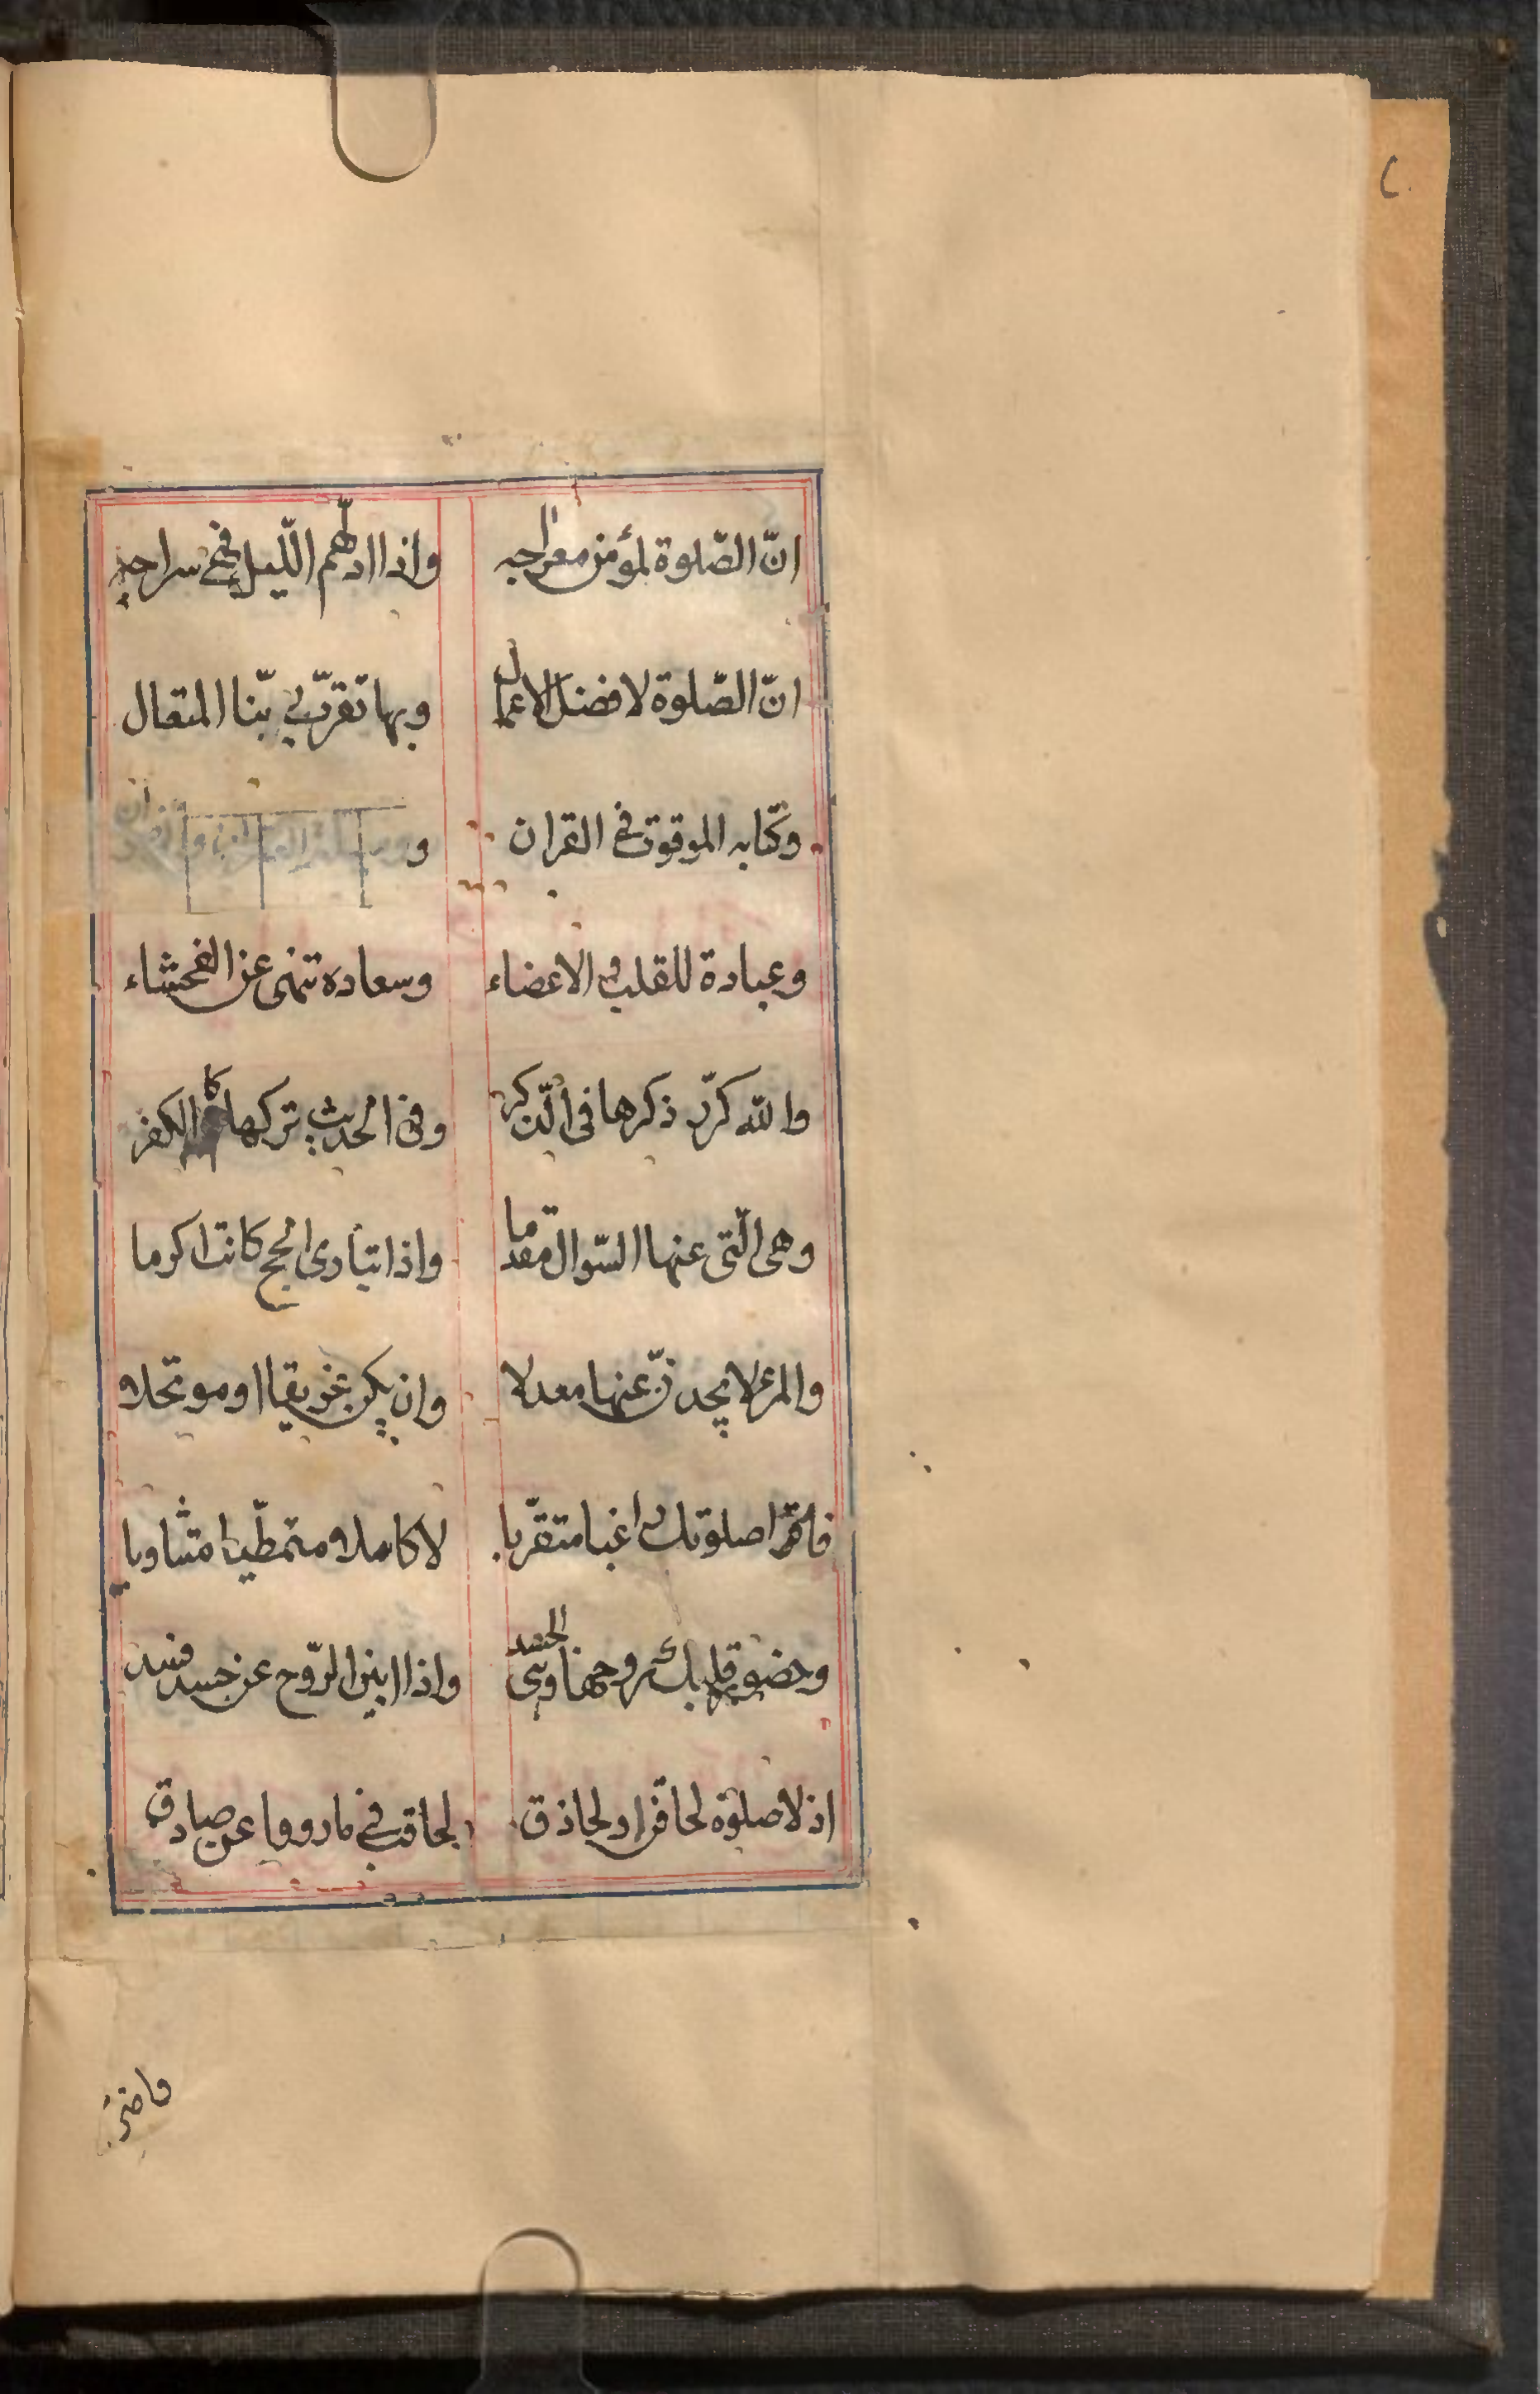 انّ الصّلوة لمؤمن معراجه واذا ادلهّم اللّيل فهى سراجه
انّ الصّلوة لافضل الاعمال وبها تقرّب لربّنا المتعال
وكتابه الموقوت فى القران و
وعبادة للقلب والاعضاء وسعاده تنهى عن الفحشاء
والله كرّر ذكرها فى الّذكر وفى الحديث تركها كالكفر
وهى الّتى عنها السّوال مقدما واذا تبارى الحج كانت اكرما
والمرء لا يجدنّ عنها معدلا وان يكن غريقا او موتحلا
فاقم صلوتك راغبا متقرّبا لا كاسلا ومتمطّيا متثاوبا
وحضور قلبك روحها وهى الجسد واذا ابين الرّوح عن جسد فسد
اذ لا صلوة لحاقن او لحاذق لحاقب فى ما رووا عن صادق